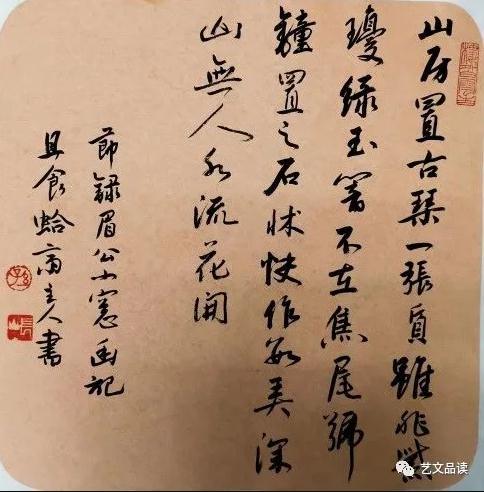 山房置古琴一張質雖非紫
瓊綠玉響不在焦尾號
鐘置之石牀快作數弄深
山無人水流花開
節錄眉公小窻幽記
且食蛤齋主人書
艺文品读